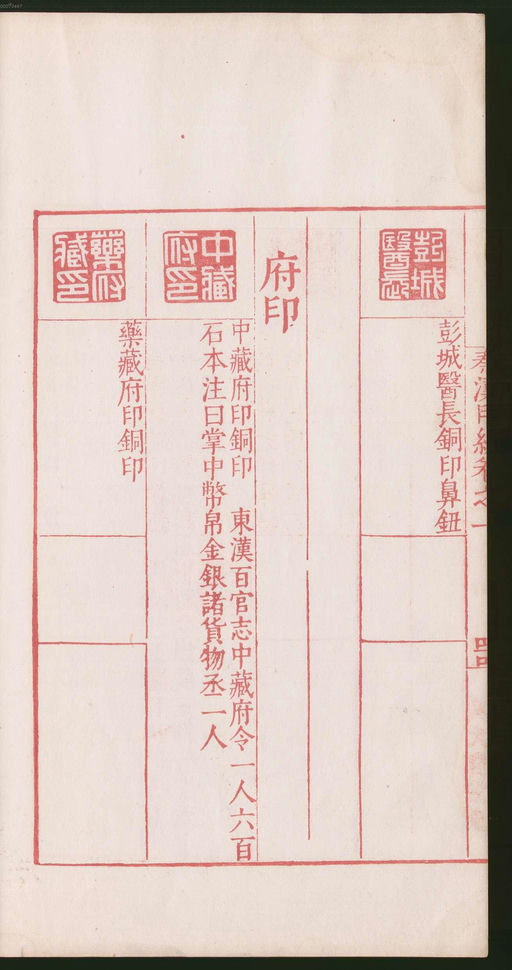 秦漢印統卷之一
彭城醫長
彭城醫長銅印鼻鈕
府印
中藏府印
中藏府印銅印 東漢百官志中藏府令一人六百
石本注曰掌中幣帛金銀諸貨物丞一人
藥府藏印
藥藏府印銅印